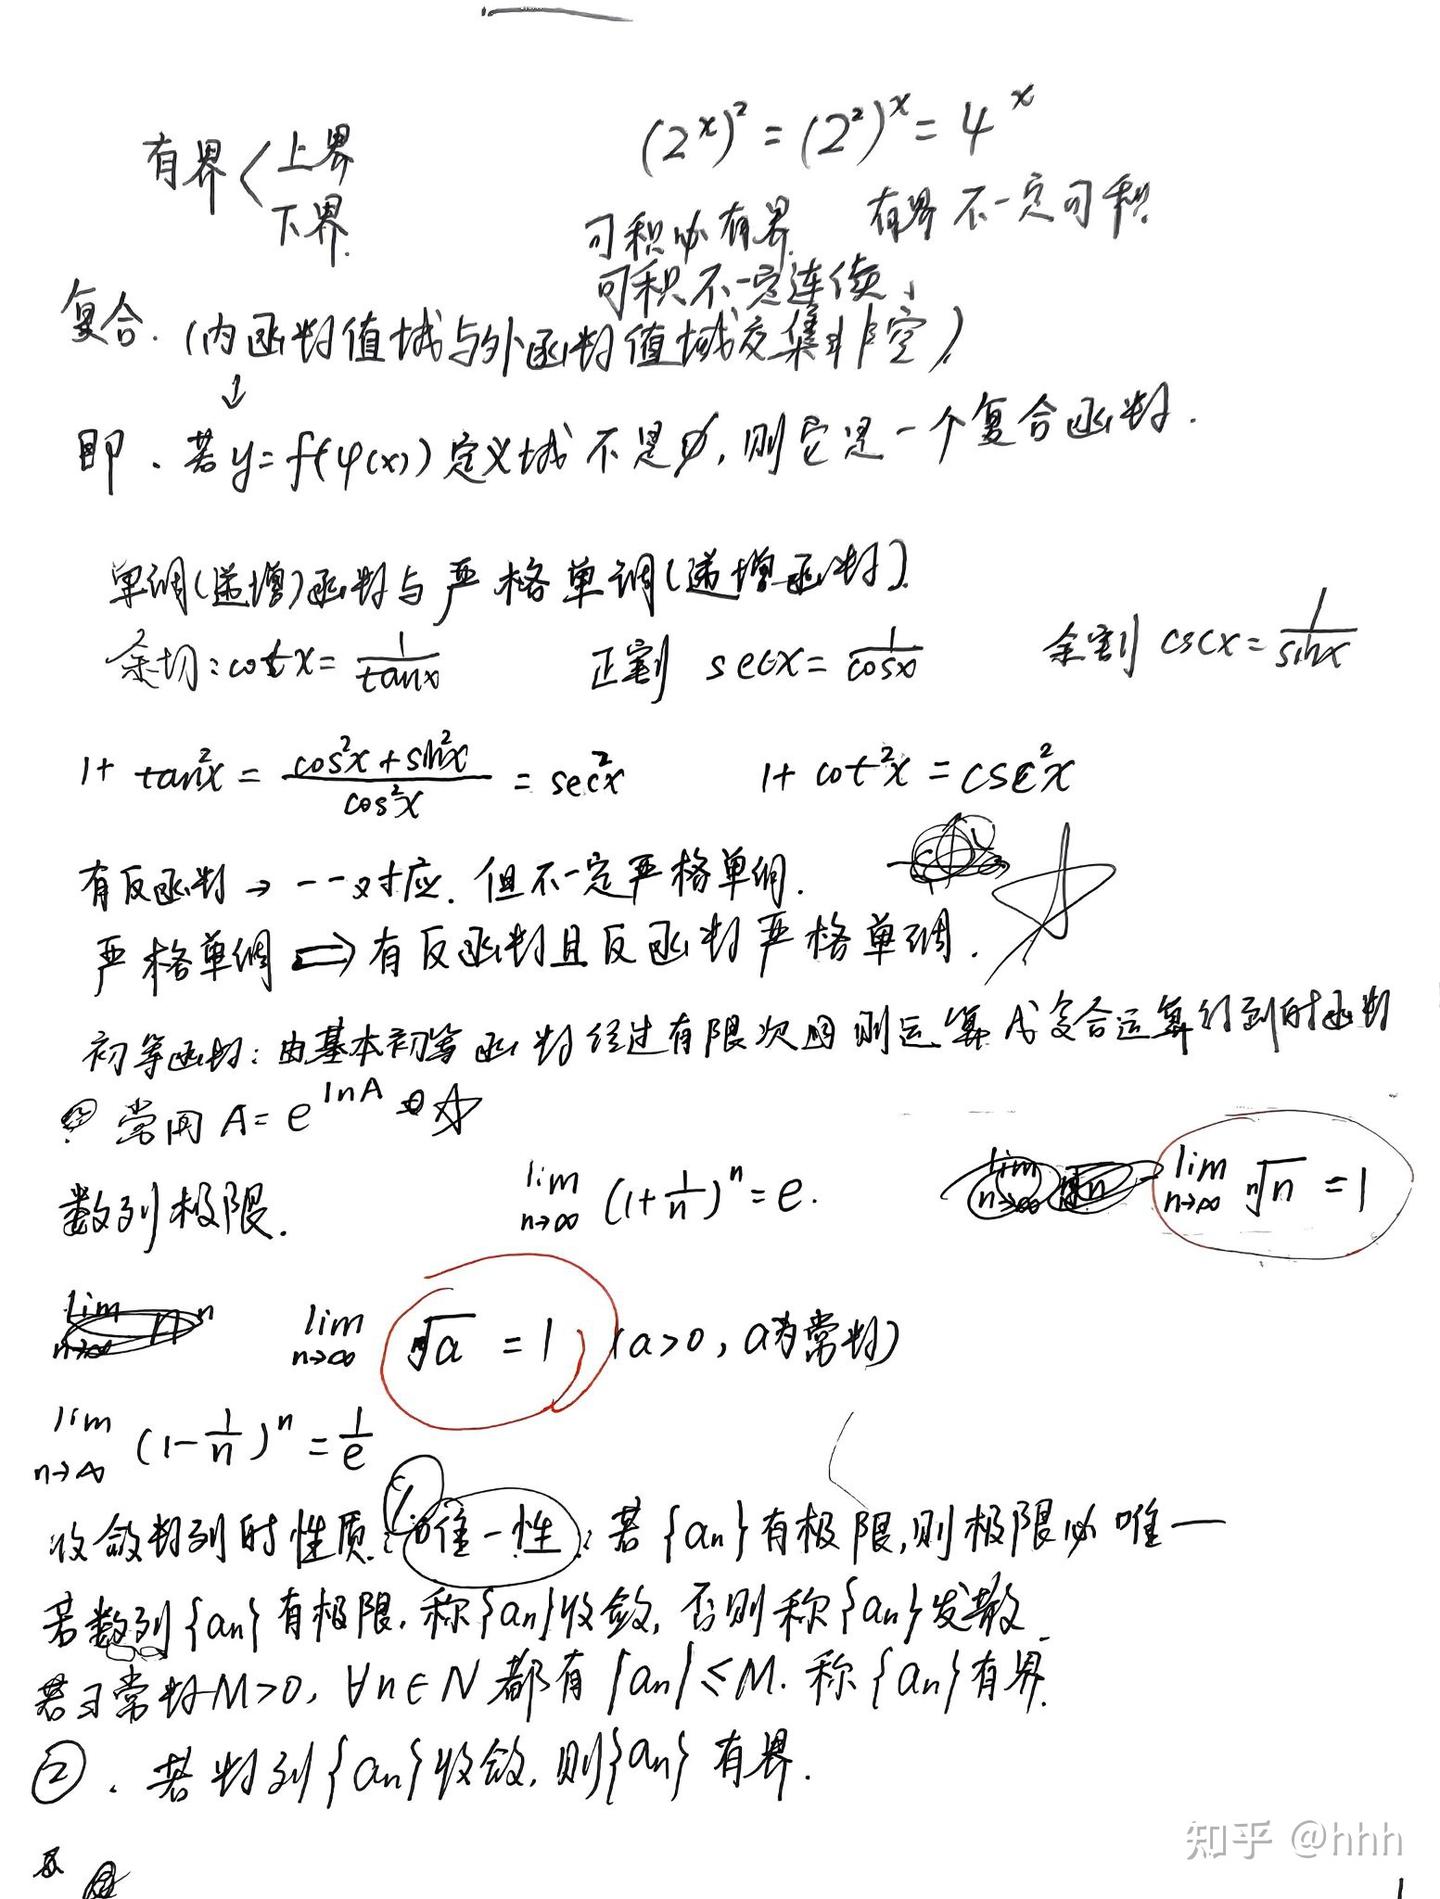 有界 < 上界
下界.
(2^x)^2 = (2^2)^x = 4^x
可积必有界. 有界不一定可积.
可积不一定连续.
复合. (内函数值域与外函数值域交集非空)
↓
即. 若y=f(φ(x))定义域不是∅, 则它是一个复合函数.
单调(递增)函数与严格单调(递增函数).
余切: cotx = 1/tanx 正割 secx = 1/cosx 余割 cscx = 1/sinx
1+tan²x = (cos²x+sin²x)/cos²x = sec²x 1+cot²x = csc²x
有反函数→一一对应. 但不一定严格单调.
严格单调 ⇒ 有反函数且反函数严格单调.
初等函数: 由基本初等函数经过有限次四则运算或复合运算得到的函数
常用 A = e^{lnA} ☆
数列极限. lim n→∞ (1+1/n)^n = e. lim n→∞ ⁿ√n = 1
lim n→∞ ⁿ√a = 1 (a>0, a为常数)
lim n→∞ (1-1/n)^n = 1/e
收敛数列的性质: ① 唯一性: 若{an}有极限, 则极限必唯一
若数列{an}有极限, 称{an}收敛, 否则称{an}发散.
若∃常数M>0, ∀n∈N都有|an|≤M. 称{an}有界.
②. 若数列{an}收敛, 则{an}有界.
知乎 @hhh